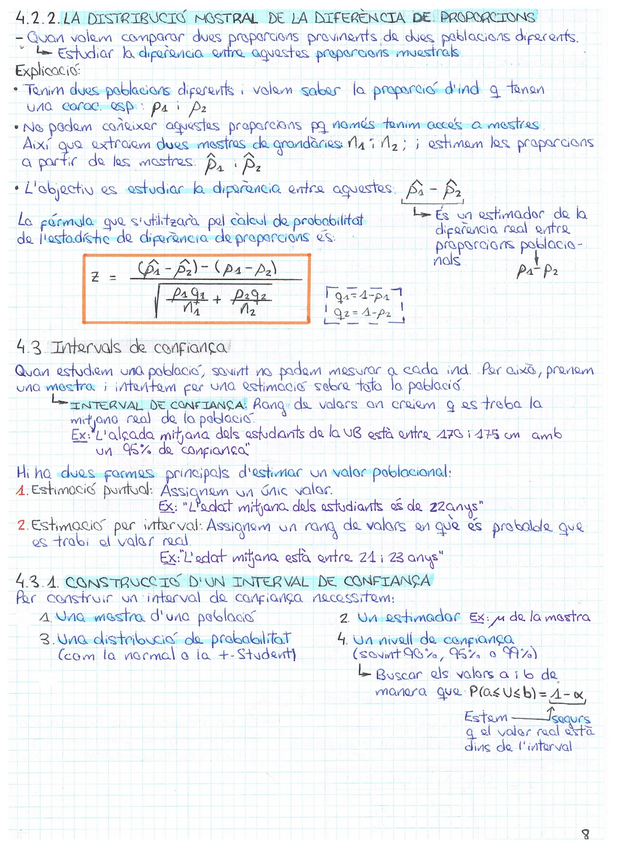 4.2.2. LA DISTRIBUCIÓ MOSTRAL DE LA DIFERÈNCIA DE PROPORCIONS
- Quan volem comparar dues proporcions provinents de dues poblacions diferents.
↳ Estudiar la diferència entre aquestes proporcions mostrals
Explicació:
• Tenim dues poblacions diferents i volem saber la proporció d'ind q tenen
una carac. esp: p1 i p2
• No podem conèixer aquestes proporcions pq només tenim accés a mostres.
Així que extraiem dues mostres de grandàries: n1 i n2; i estimem les proporcions
a partir de les mostres. p̂1 i p̂2
• L'objectiu es estudiar la diferència entre aquestes. p̂1 - p̂2
↳ És un estimador de la
diferència real entre
proporcions poblacio-
nals
p1 - p2
La fórmula que s'utilitzarà pel càlcul de probabilitat
de l'estadístic de diferència de proporcions és:
z = (p̂1 - p̂2) - (p1 - p2) / √(p1q1/n1 + p2q2/n2)
q1 = 1-p1
q2 = 1-p2
4.3 Intervals de confiança
Quan estudiem una població, sovint no podem mesurar a cada ind. Per això, prenem
una mostra i intentem fer una estimació sobre tota la població.
↳ INTERVAL DE CONFIANÇA: Rang de valors on creiem q es troba la
mitjana real de la població.
Ex: "L'alçada mitjana dels estudiants de la UB està entre 170 i 175 cm amb
un 95% de confiança"
Hi ha dues formes principals d'estimar un valor poblacional:
1. Estimació puntual: Assignem un únic valor.
Ex: "L'edat mitjana dels estudiants és de 22 anys"
2. Estimació per interval: Assignem un rang de valors en què és probable que
es trobi el valor real
Ex: "L'edat mitjana està entre 21 i 23 anys"
4.3.1. CONSTRUCCIÓ D'UN INTERVAL DE CONFIANÇA
Per construir un interval de confiança necessitem:
1. Una mostra d'una població
2. Un estimador Ex: μ de la mostra
3. Una distribució de probabilitat
(com la normal o la t-Student)
4. Un nivell de confiança
(sovint 90%, 95% o 99%)
↳ Buscar els valors a i b de
manera que P(a≤U≤b) = 1-α
Estem segurs
q el valor real està
dins de l'interval
8